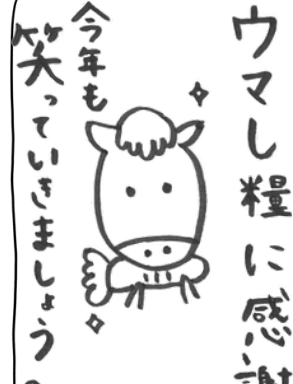 ウマし糧に感謝
今年も
笑っていきましょう。